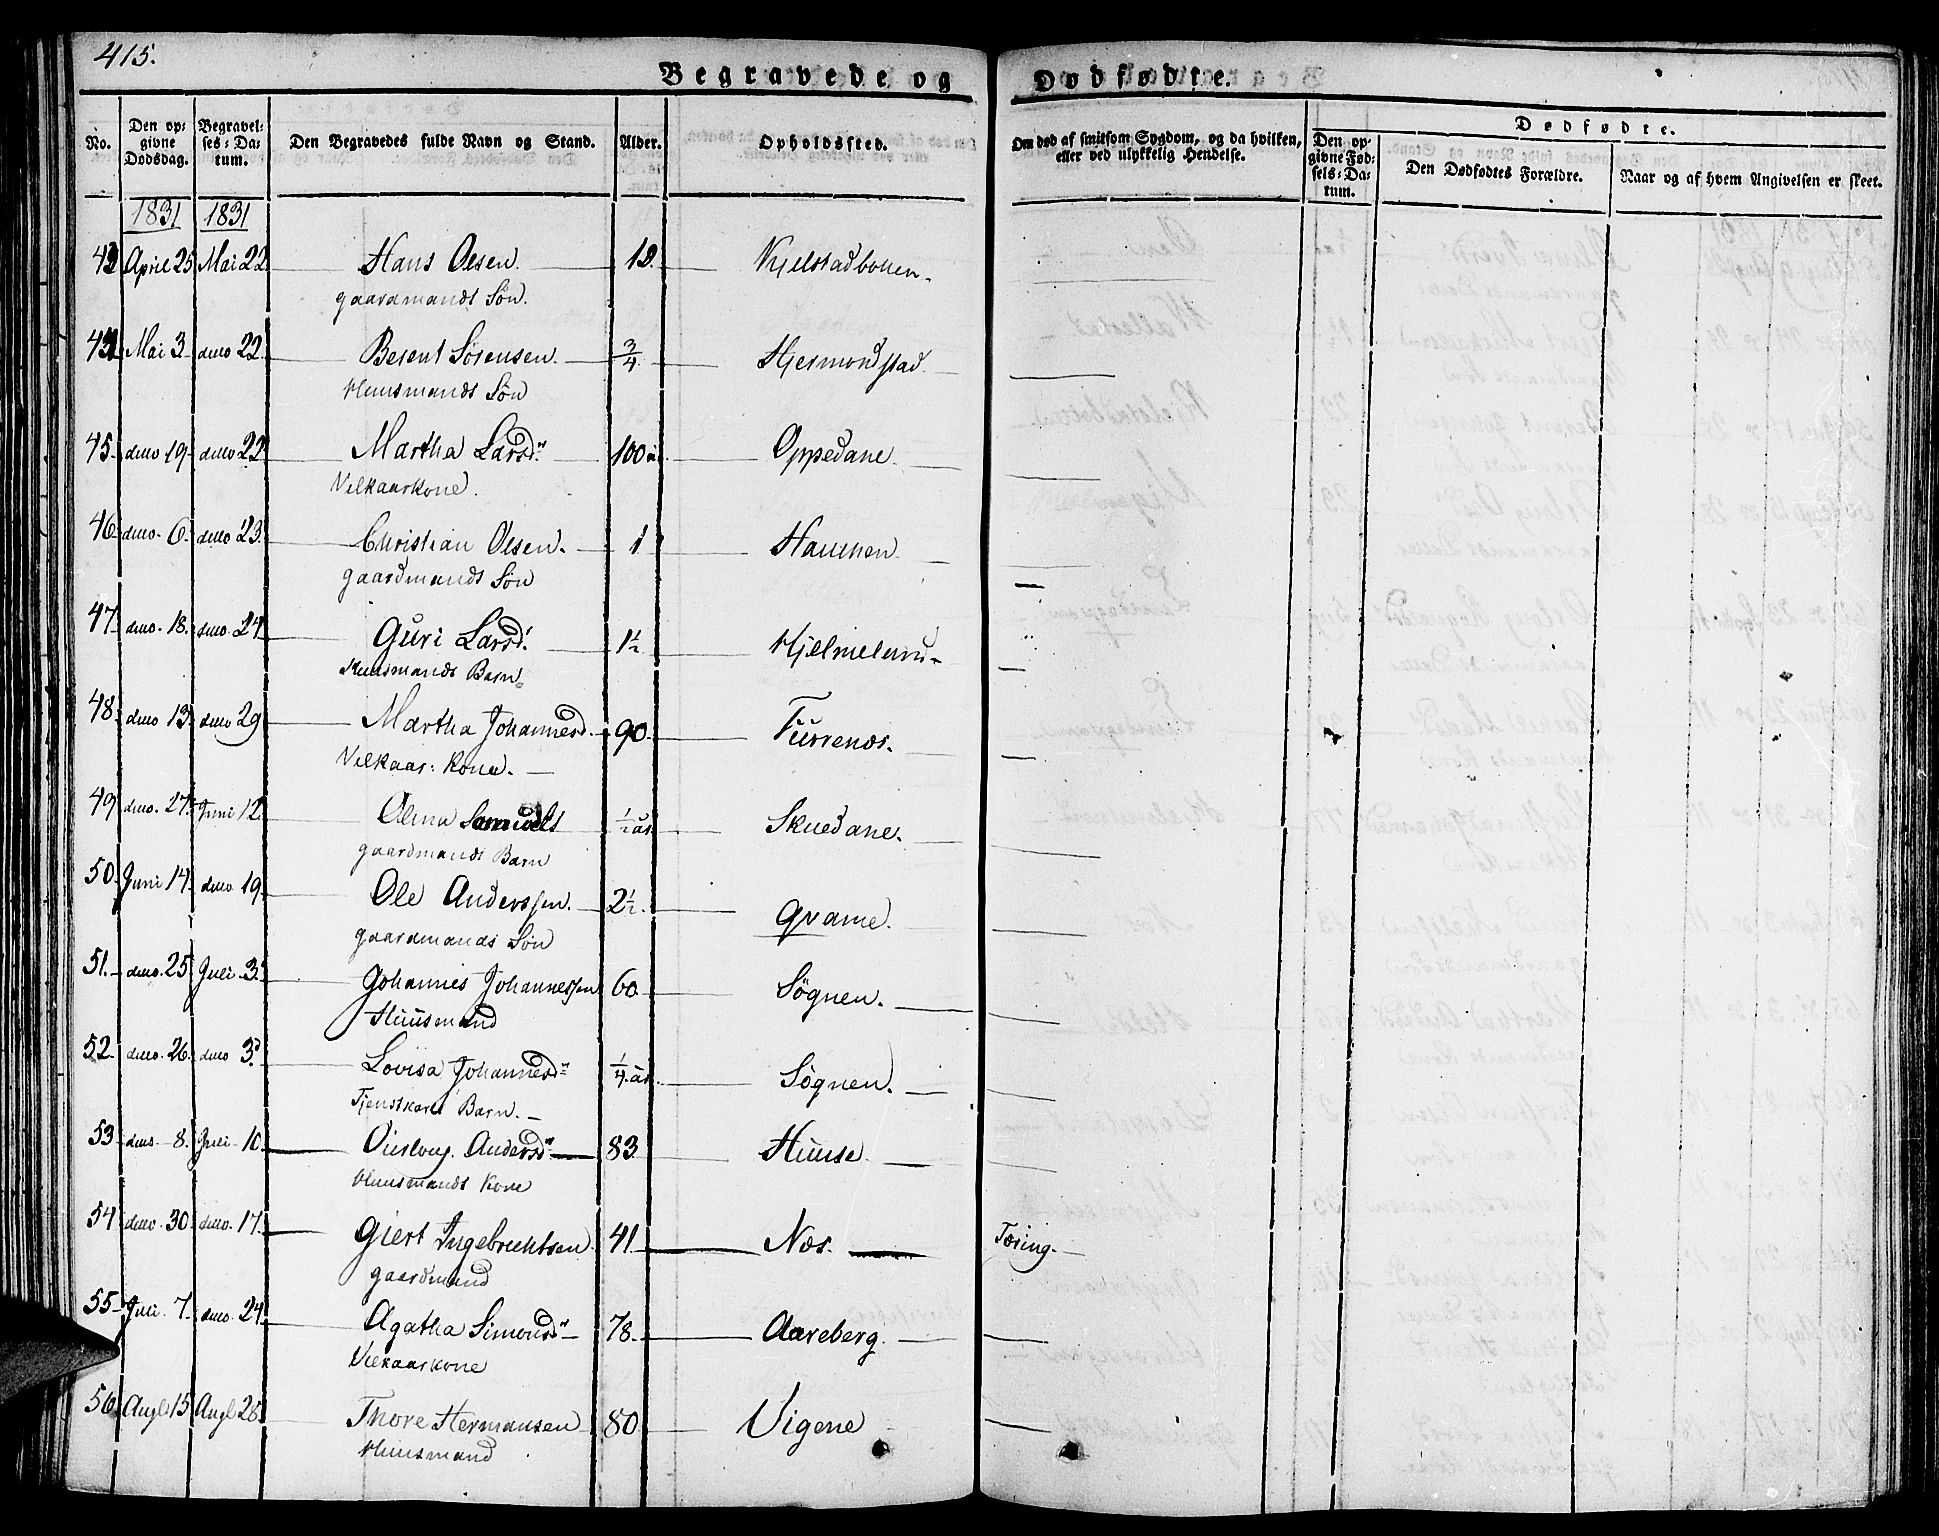 415.
Begravede og Dødfødte.
No.
Den opgivne Dødsdag.
Begravelses-Datum.
Den Begravedes fulde Navn og Stand.
Alder.
Opholdssted.
Om død af smitsom Sygdom, og da hvilken, eller ved ulykkelig Hendelse.
Dødfødte.
Den opgivne Fødsels-Datum.
Den Dødfødtes Forældre.
Naar og af hvem Angivelsen er skeet.
1831 1831
April 25 Mai 22 Hans Olsen. 12. Kjelstadbotten
gaardmands Søn.
Mai 3 dito 22 Berent Sørensen 3/4 Hjermondstad
Huusmands Søn
45 dito 19 dito 22 Martha Larsdr 100 a Oppedane
Vilkaarskone.
46 dito 6 dito 23 Christian Olsen. 1 Hammen
gaardmands Søn
47 dito 18. dito 24 Guri Larsd. 1 1/2 Hjelmelund
Huusmands Barn
48 dito 13 dito 29 Martha Johannesd. 90 Furrenæs.
Vilkaars Kone.
49 dito 27 Juni 12 Olina Samuels 1/2 år. Skuedane.
gaardmands Barn
50. Juni 14 dito 19. Ole Anderssen. 2 1/2. Qvame.
gaardmands Søn
51. dito 25 Juli 3 Johannes Johannessen 60 Søgnen.
Huusmand
52 dito 26 dito 3 Lovisa Johannesd 1/4 år. Søgnen.
Tjenstkarls Barn.
53 dito 8. Juli 10. Andersd 83 Huuse
Huusmands Kone
54 dito 30 dito 17 Giert Ingebrechtsen 41 Næs. Tæring.
gaardmand
55 Juli 7. dito 24 Agatha Simonsd 78. Aareberg.
Vilkaarskone
56 Augt 15 Augt 28 Thore Hermansen 80 Vigene
Huusmand